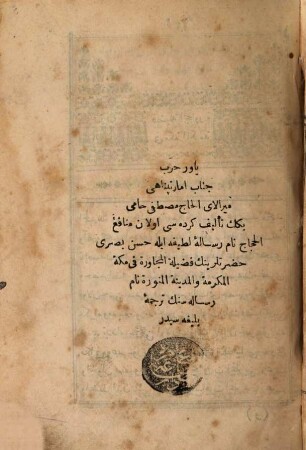 ياور حرب
جناب امارتپناهى
ميرالاى الحاج مصطفى حامى
بكك تأليف كرده سى اولان منافع
الحجاج نام رسالۀ لطيفه ايله حسن بصرى
حضرتلرينك فضيلة المجاورة فى مكة
المكرمة والمدينة المنورة نام
رساله سنك ترجمۀ
بليغه سيدر